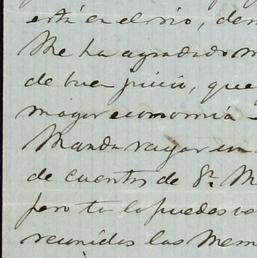 está en el rio, den
Me ha agradado m
de buen juicio, que
mayor economía
Manda rayar un
de cuentas de 8ª M
pero tu lo puedes ve
reunidos las Mem